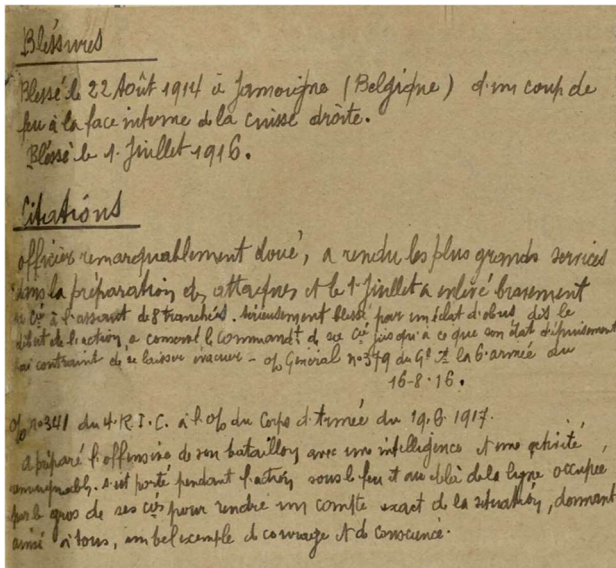 Bléssures
Blessé le 22 Août 1914 à Jamoigne (Belgique) d'un coup de
feu à la face interne de la cuisse droite.
Bléssé le 1. Juillet 1916.
Citations
officier remarquablement doué, a rendu les plus grands services
dans la préparation des attaques et le 1. Juillet a enlevé bravement
sa Cie à l'assaut de 8 tranchées. sérieusement blessé par un éclat d'obus dès le
début de l'action, a conservé le commandt de sa Cie jusqu'à ce que son état d'épuisement
l'ai contraint de se laisser évacuer - o/ Général no 379 du Gl Ct la 6e armée du
16-8-16.
o/ no 341 du 4. R.I.C. à l'o/ du Corps d'Armée du 19.6.1917.
a préparé l'offensive de son bataillon avec une intelligence et une activité
remarquables. s'est porté pendant l'action sous le feu et au delà de la ligne occupée
par le gros de ses cies pour rendre un compte exact de la situation, donnant
ainsi à tous, un bel exemple de courage et de conscience.